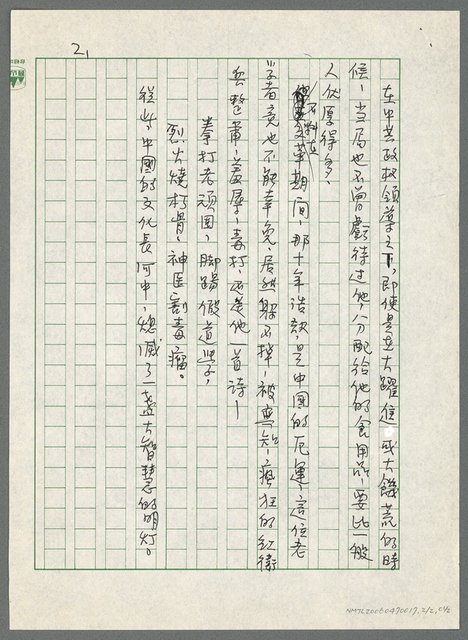 21
在中共政权領導之下,即使是在大躍進或大饑荒的時
候,当局也不曾虧待过他,分配給他的食用品,要比一般
人优厚得多、
不料在文革期间,那十年浩劫,是中國的厄運,這位老
学者竟也不能幸免,居然躲不掉,被無知,瘋狂的紅衛
兵整肅,羞辱,毒打,还是他一首诗—
拳打老頑固,脚踢假道学,
烈火燒朽骨,神医割毒瘤。
從此,中國的文化長河中,熄滅了一盞大智慧的明灯。
NMTL20060470017,2/2,